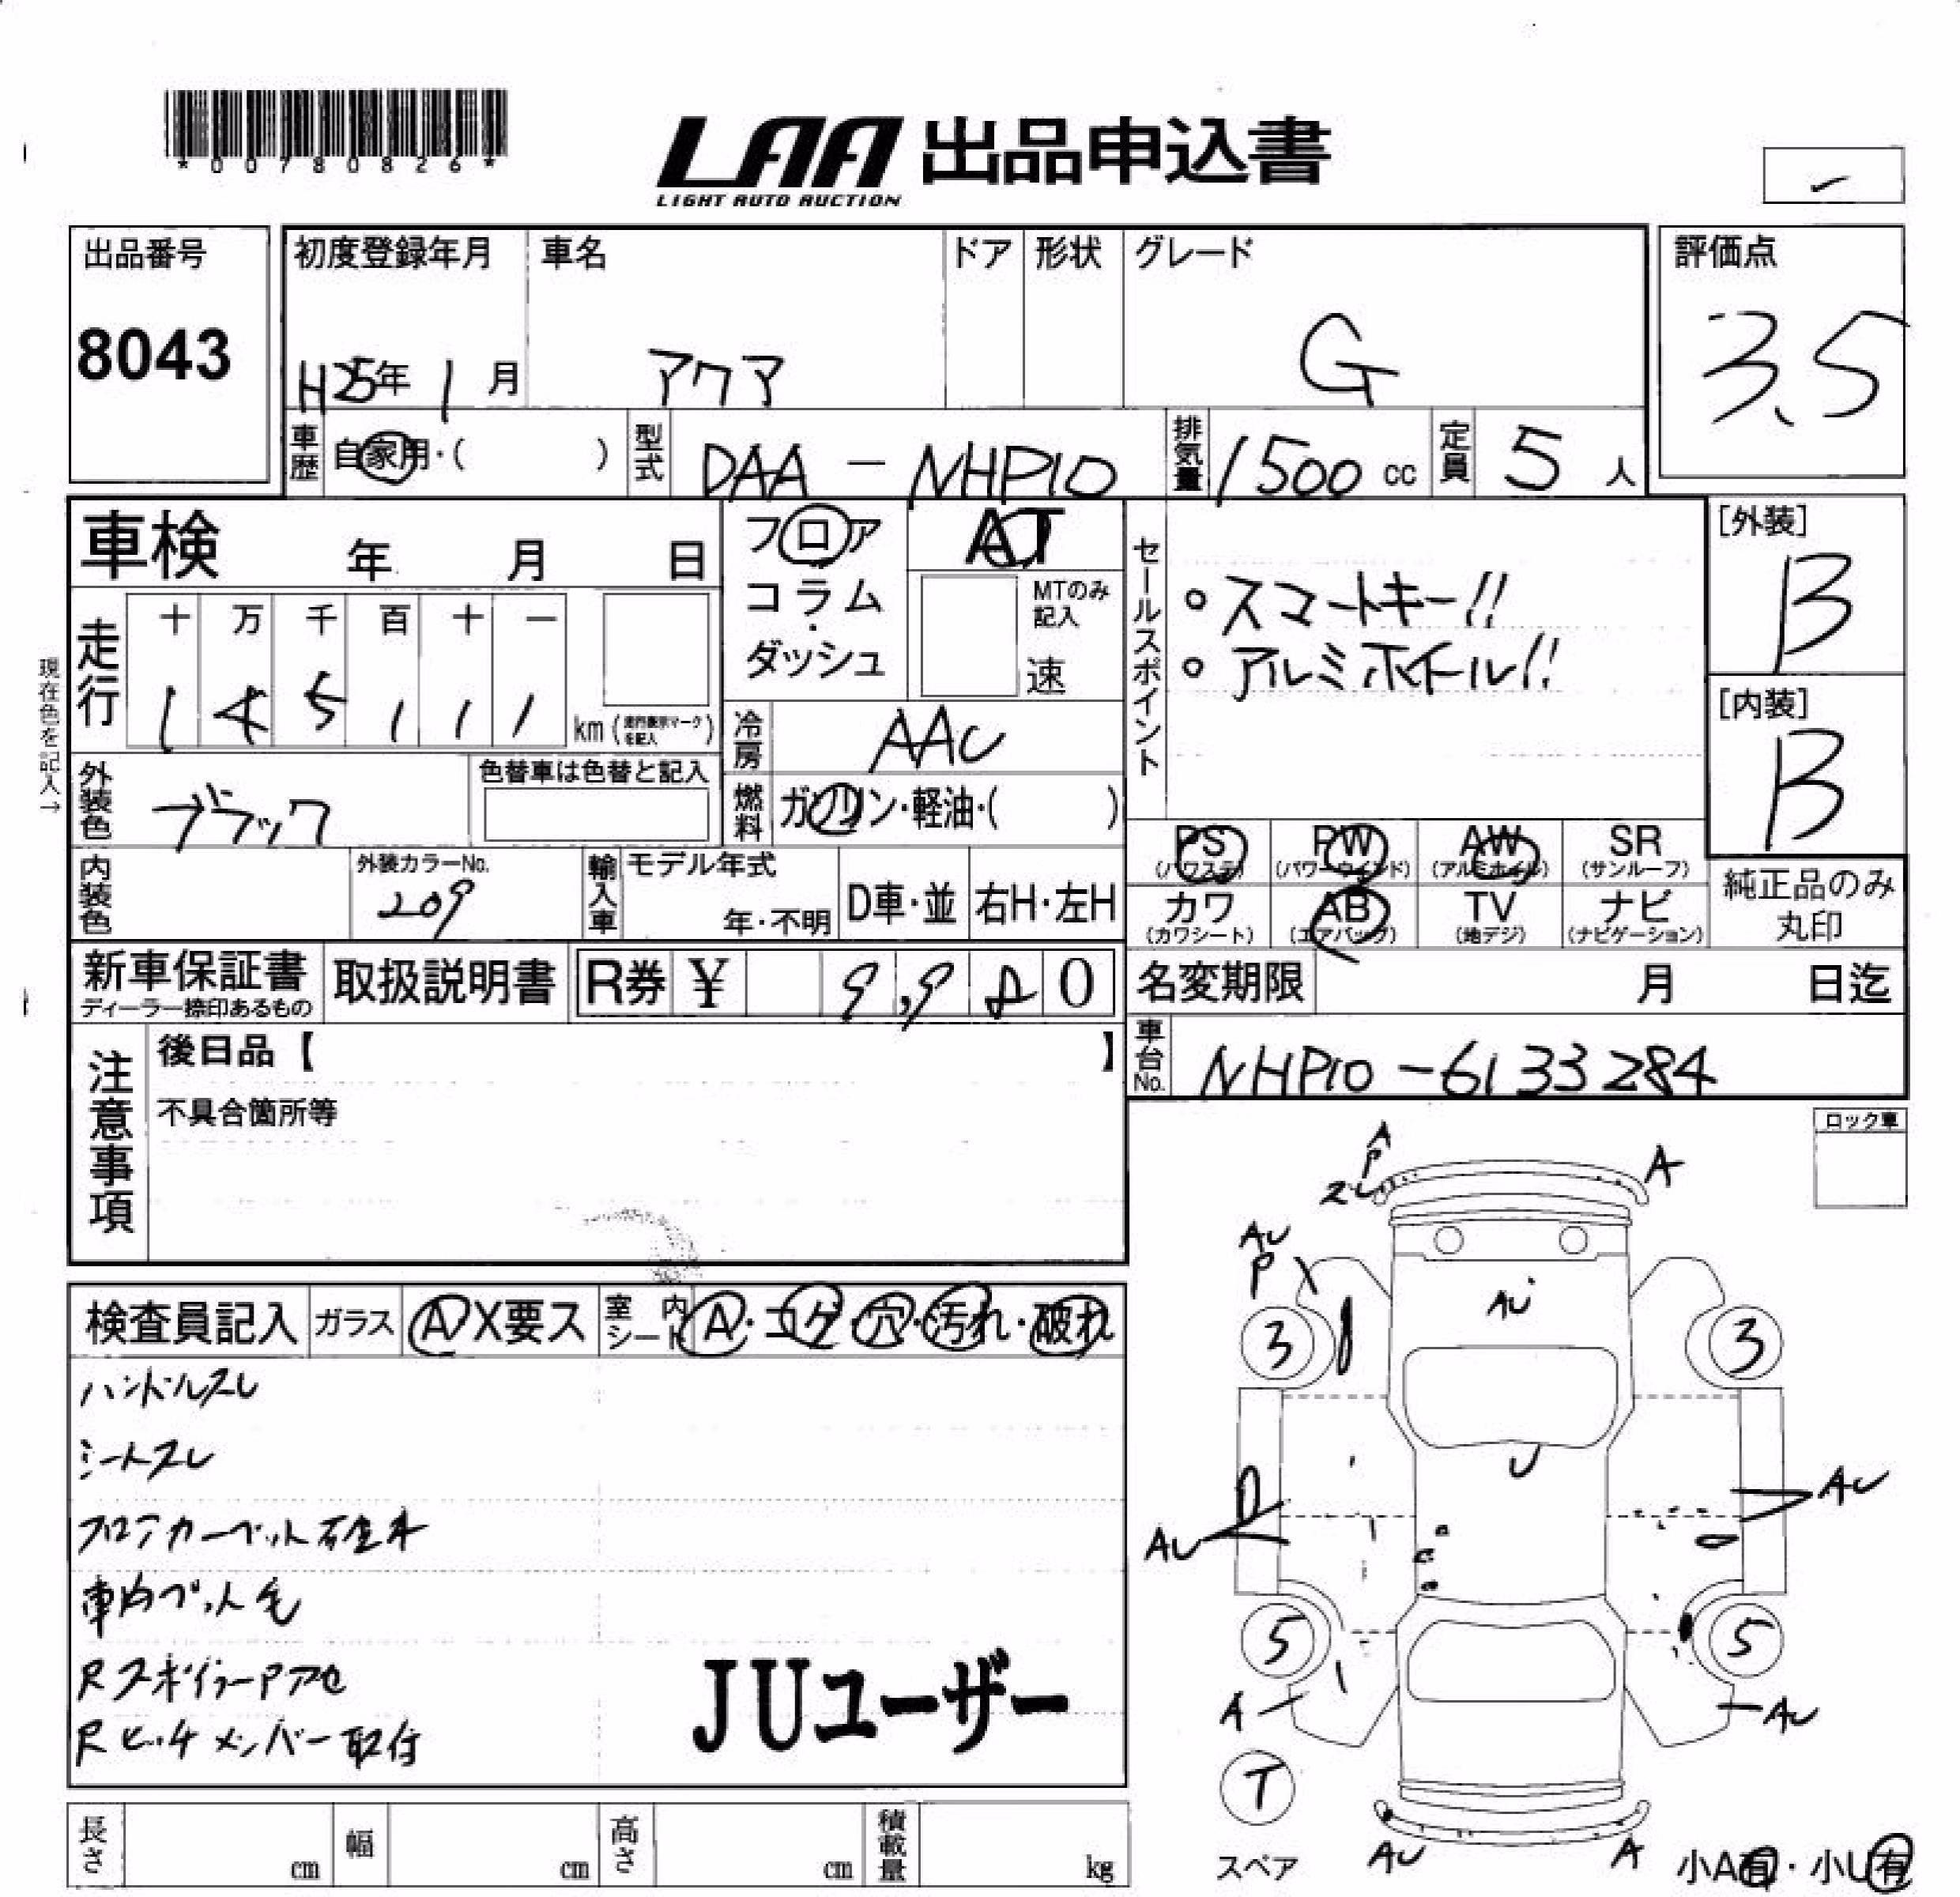 *00780826*
LAA 出品申込書
LIGHT AUTO AUCTION
出品番号
8043
初度登録年月
H25年 1月
車名
アクア
ドア
形状
グレード
G
評価点
3.5
車歴
自家用・( )
型式
DAA-NHP10
排気量
1500 cc
定員
5 人
車検 年 月 日
フロア
コラム
・
ダッシュ
AT
MTのみ
記入
速
セールスポイント
○スマートキー!!
○アルミホイール!!
[外装]
B
[内装]
B
現在色を記入→
走行
十 万 千 百 十 一
1 4 5 1 1 1
km (走行表示マークを記入)
冷房
AAC
外装色
ブラック
色替車は色替と記入
燃料
ガソリン・軽油・( )
PS PW AW SR
(パワステ) (パワーウインド) (アルミホイル) (サンルーフ)
内装色
外装カラーNo.
209
輸入車
モデル年式
年・不明
D車・並
右H・左H
カワ AB TV ナビ
(カワシート) (エアバッグ) (地デジ) (ナビゲーション)
純正品のみ
丸印
新車保証書
ディーラー捺印あるもの
取扱説明書
R券 ¥ 9,980
名変期限 月 日迄
車台No.
NHP10-6133284
注意事項
後日品【 】
不具合箇所等
ロック車
検査員記入
ガラス
A X要ス
室内シート
A・コゲ・穴・汚れ・破れ
ハンドルスレ
シートスレ
フロアカーペット
車内ペット毛
Rスポイラーアセ
Rヒッチメンバー取付
JUユーザー
A
P
スレ
A
AU
P
AU
3
3
U
AU
AU
5
5
A
AU
T
スペア
AU
A
小A有・小U有
長さ cm
幅 cm
高さ cm
積載量 kg